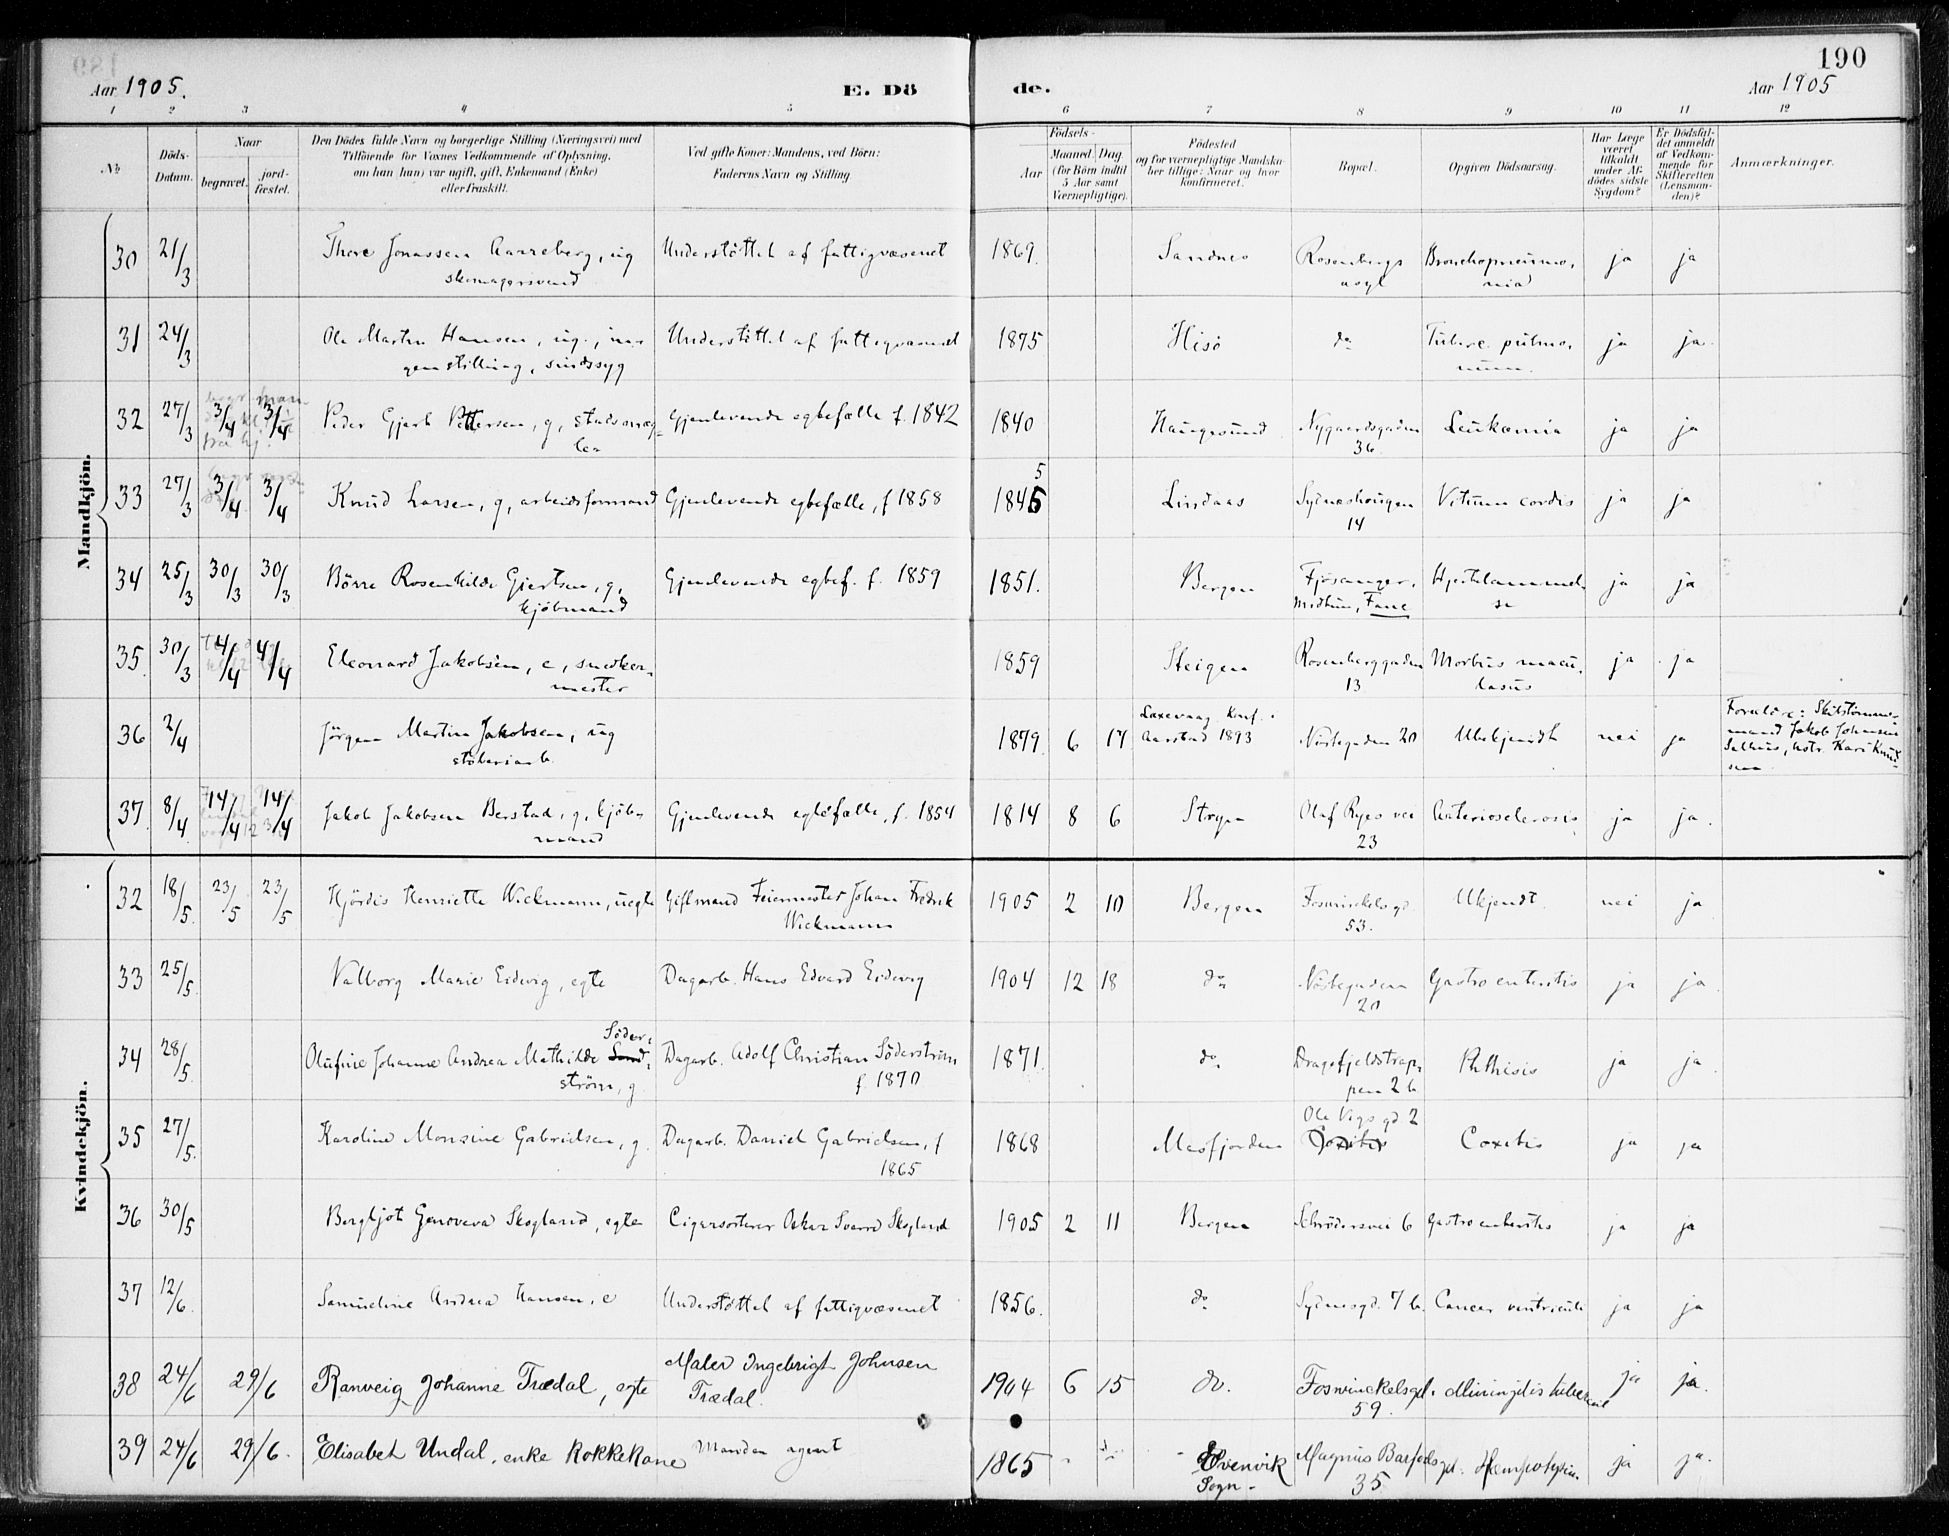 190
Aar 1905.
E. Dö
de.
Aar 1905
1 2 3 4 5 6 7 8 9 10 11 12
No
Döds-Datum.
Naar
begravet.
jord-fæstet.
Den Dödes fulde Navn og borgerlige Stilling (Næringsvei) med
Tilföiende for Voxnes Vedkommende af Oplysning,
om han (hun) var ugift, gift, Enkemand (Enke)
eller fraskilt.
Ved gifte Koner: Mandens, ved Börn:
Faderens Navn og Stilling
Födsels-
Aar
Maaned. Dag
(for Börn indtil
5 Aar samt
Værnepligtige).
Födested
og for værnepligtige Mandskaber tillige: Naar og hvor
konfirmeret.
Bopæl.
Opgiven Dödsaarsag.
Har Læge
været
tilkaldt
under Af-
dödes sidste
Sygdom?
Er Dödsfal-
det anmeldt
af Vedkom-
mende for
Skifteretten
(Lensman-
den)?
Anmærkninger.
Mandkjön.
30 21/3 Thore Jonassen Aarreberg, ug Understöttet af fattigvæsenet 1869. Sandnes Rosenbergs Bronchopneumo, ja ja
skomagersvend asyl nia
31 24/3 Ole Martin Hansen, ug., in- Understöttet af fattigvæsenet 1875 Hisö do Tuberc. pulmo, ja ja.
genstilling, sindssyg num.
32 27/3 3/4 3/4 Peder Gjert Pettersen, g, stadsmæg- Gjenlevende egtefælle f. 1842 1840 Haugesund Nygaardsgaden Leukæmia ja ja
ler 36
33 27/3 3/4 3/4 Knud Larsen, g, arbeidsformand Gjenlevende egtefælle, f 1858 1845 5 Lindaas Sydneshougen Vitium cordis ja ja
14
34 25/3 30/3 30/3 Börre Rosenkilde Gjertsen, g, Gjenlevende egtef. f. 1859 1851. Bergen Fjösanger, Hjertelammel- ja ja
kjöbmand Midtun, Fane se
35. 30/3 4/4 4/4 Eleonard Jakobsen, e, snedker- 1859 Steigen Rosenberggaden Morbus macu, ja ja
mester 13 losus
36 2/4 Jörgen Martin Jakobsen, ug 1879. 6 17 Laxevaag. Konf. i Nöstegaden 20 Ubekjendt nei ja Forældre: Skibstömmer-
stöberiarb. Aarstad 1893 mand Jakob Johansen
Salhus, hstr. Kari Knud-
sen
37. 8/4 14/4 14/4 Jakob Jakobsen Berstad, g, kjöb- Gjenlevende egtefælle, f. 1854 1814 8 6 Stryn Olaf Ryes vei Arteriosclerosis ja ja.
mand 23
Kvindekjön.
32 18/5. 23/5 23/5 Hjördis Henriette Wickmann, uegte Gift mand Feiermester Johan Fredrik 1905 2 10 Bergen Foswinckels gd. Ukjendt. nei ja
Wickmann 53.
33 25/5. Valborg Marie Eidevig, egte Dagarb. Hans Edvard Eidevig 1904 12 18 do Nöstegaden Gastroenteritis ja ja.
20
34 28/5. Olufine Johanne Andrea Mathilde Söder- Dagarb. Adolf Christian Söderström 1871 do Dragefjeldstrap- Phthisis ja ja
ström, g. f. 1870 pen 2 b
35 27/5. Karoline Monsine Gabrielsen, g. Dagarb. Daniel Gabrielsen, f 1868 Masfjorden Ole Vigs gd 2 Coxitis ja ja
1865 Coxitis
36 30/5 Bergljot Genoveva Skogland, egte Cigarsorterer Oskar Sverre Skogland 1905 2 11 Bergen Schrödersvei 6 Gastroenteritis ja ja
37 12/6. Samueline Andrea Hansen, e Understöttet af fattigvæsenet 1856. do Sydnesgd. 7 b. Cancer ventriculi ja ja
38 24/6 29/6 Ranveig Johanne Trædal, egte Maler Ingebrigt Johnsen 1904 6 15 do. Foswinckelsgd. Miningitis tubercul ja ja.
Trædal. 59.
39 24/6 29/6. Elisabet Undal, enke kokkekone Manden agent 1865 - Evenvik Magnus Barfods gd. Hæmpotysis. ja ja.
Sogn - 35